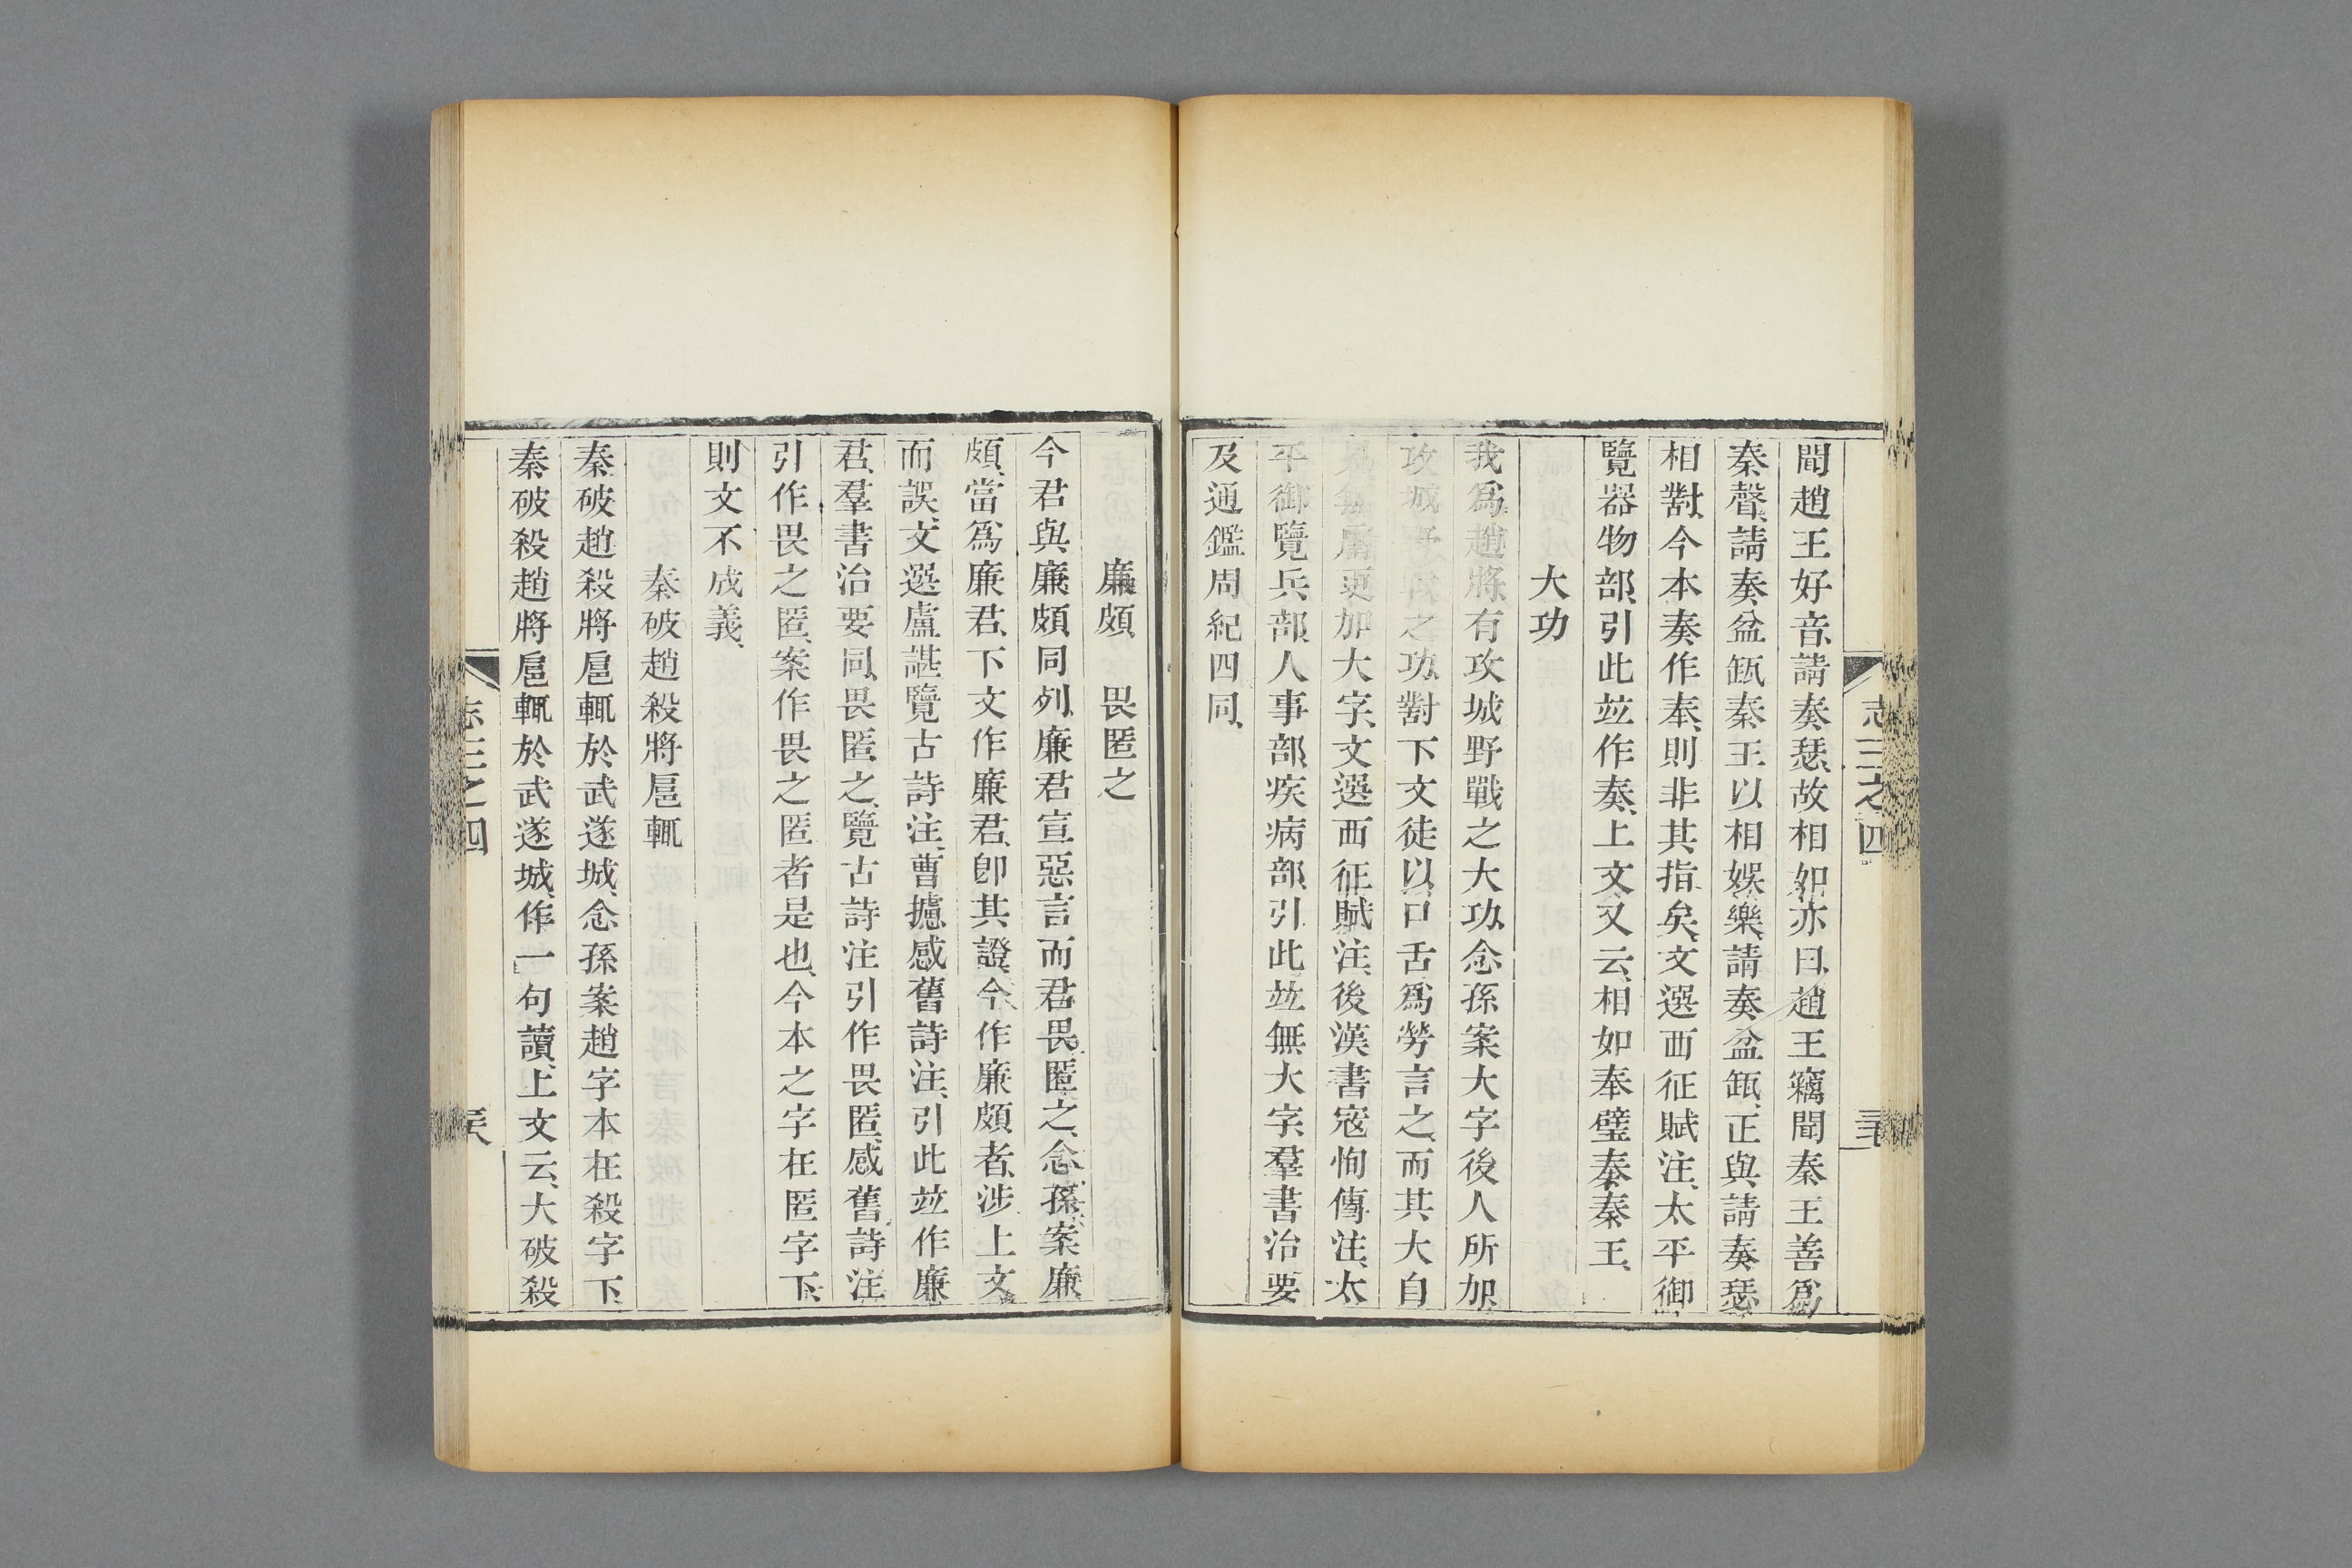 志三之四
聞趙王好音、請奏瑟、故相如亦曰、趙王竊聞秦王善爲
秦聲、請奏盆缻、秦王以相娛樂、請奏盆缻、正與請奏瑟
相對、今本奏作奉、則非其指矣、文選西征賦注、太平御
覽器物部、引此竝作奏、上文又云、相如奉璧奏秦王、
大功
我爲趙將、有攻城野戰之大功、念孫案大字後人所加、
攻城野戰之功、對下文徒以口舌爲勞言之、而其大自
見、無庸更加大字、文選西征賦注、後漢書寇恂傳注、太
平御覽兵部、人事部、疾病部、引此竝無大字、羣書治要
及通鑑周紀四同、
廉頗　畏匿之
今君與廉頗同列、廉君宣惡言而君畏匿之、念孫案廉
頗、當爲廉君、下文作廉君、卽其證、今作廉頗者、涉上文
而誤、文選盧諶覽古詩注、曹攄感舊詩注、引此竝作廉
君、羣書治要同、畏匿之、覽古詩注引作畏匿、感舊詩注
引作畏之匿、案作畏之匿者是也、今本之字在匿字下、
則文不成義、
秦破趙殺將扈輒
秦破趙殺將扈輒於武遂城、念孫案趙字本在殺字下、
秦破殺趙將扈輒於武遂城、作一句讀、上文云、大破殺
志三之四